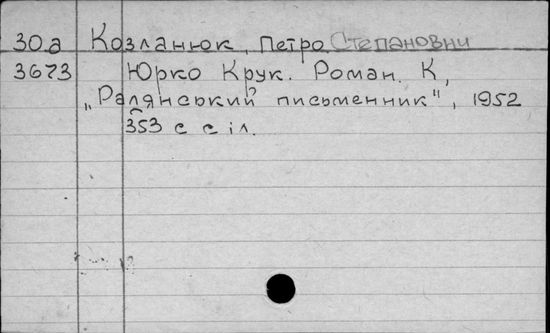 30а Козланюк, Петро Степанович
3673 Юрко Крук. Роман. К,
„Радянський письменник", 1952
353 с с іл.